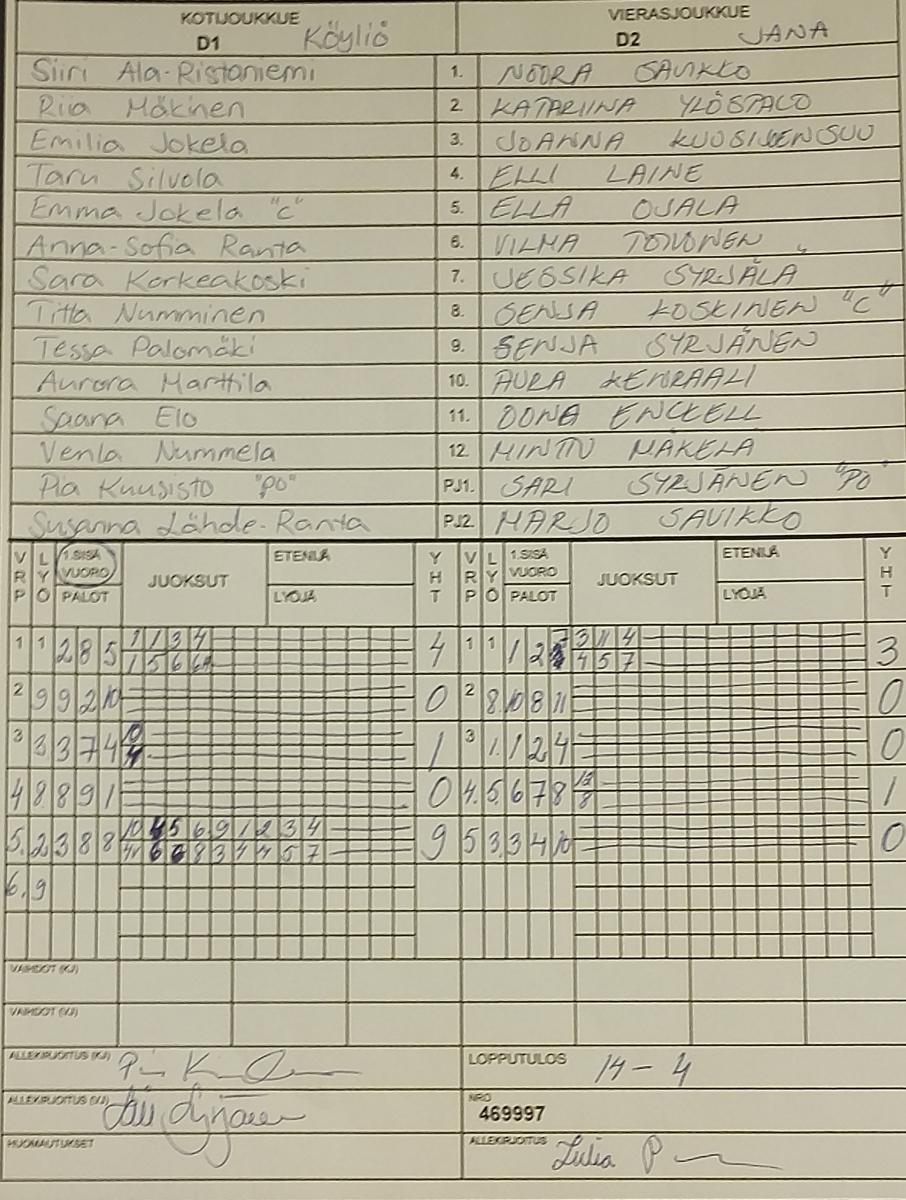 KOTIJOUKKUE VIERASJOUKKUE
D1 Köyliö D2 JANA
Siiri Ala-Ristaniemi 1. NOORA SAVIKKO
Riia Mäkinen 2. KATARIINA YLÖSTALO
Emilia Jokela 3. JOANNA KUUSIMENSUU
Taru Silvola 4. ELLI LAINE
Emma Jokela "C" 5. ELLA OJALA
Anna-Sofia Ranta 6. VILMA TOIVONEN
Sara Korkeakoski 7. JESSIKA SYRJÄLÄ
Titta Numminen 8. SENJA KOSKINEN "C"
Tessa Palomäki 9. SENJA SYRJÄNEN
Aurora Marttila 10. AURA KENRAALI
Saana Elo 11. OONA ENCKELL
Venla Nummela 12 MINTTU MÄKELÄ
Pia Kuusisto "PO" PJ1. SARI SYRJÄNEN "PO"
Susanna Lähde-Ranta PJ2. MARJO SAVIKKO
VRP LYÖ 1.SISÄ VUORO PALOT JUOKSUT ETENIJÄ LYÖJÄ YHT VRP LYÖ 1.SISÄ VUORO PALOT JUOKSUT ETENIJÄ LYÖJÄ YHT
1 1 2 8 5 1 1 3 4 4 1 1 1 2 3 11 4 3
1 5 6 4 5 7
2 9 9 2 10 0 2 8 10 8 11 0
3 3 3 7 4 10 1 3 1. 1 2 4 0
4
4 8 8 9 1 0 4. 5. 6 7 8 12 1
8
5. 2 3 8 8 10 5 6 9 1 2 3 4 9 5 3. 3 4 10 0
6 8 3 4 4 5 7
6. 9
VAIHDOT (KJ)
VAIHDOT (VJ)
ALLEKIRJOITUS (KJ) LOPPUTULOS 14-4
ALLEKIRJOITUS (VJ) NRO
469997
HUOMAUTUKSET ALLEKIRJOITUS Julia P